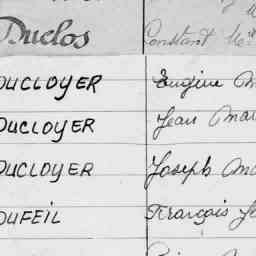 Duclos Constant
DUCLOYER Eugène
DUCLOYER Jean Mar
DUCLOYER Joseph Ma
DUFEIL François